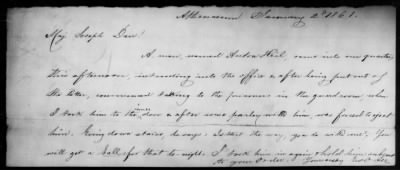 Athenaeum January 2d 1861.
Maj. Joseph Darr!
A man, named Anton Heil, came into our quarters
this afternoon, intruding into the office & after being put out of
the latter, commenced talking to the prisoners in the guardroom, when
I took him to the inner door & after some parley with him, was forced to eject
him. Going down stairs, he says: Is that the way, you do with me? You
will get a ball for that to-night. I took him in again & hold him subject
to your order.